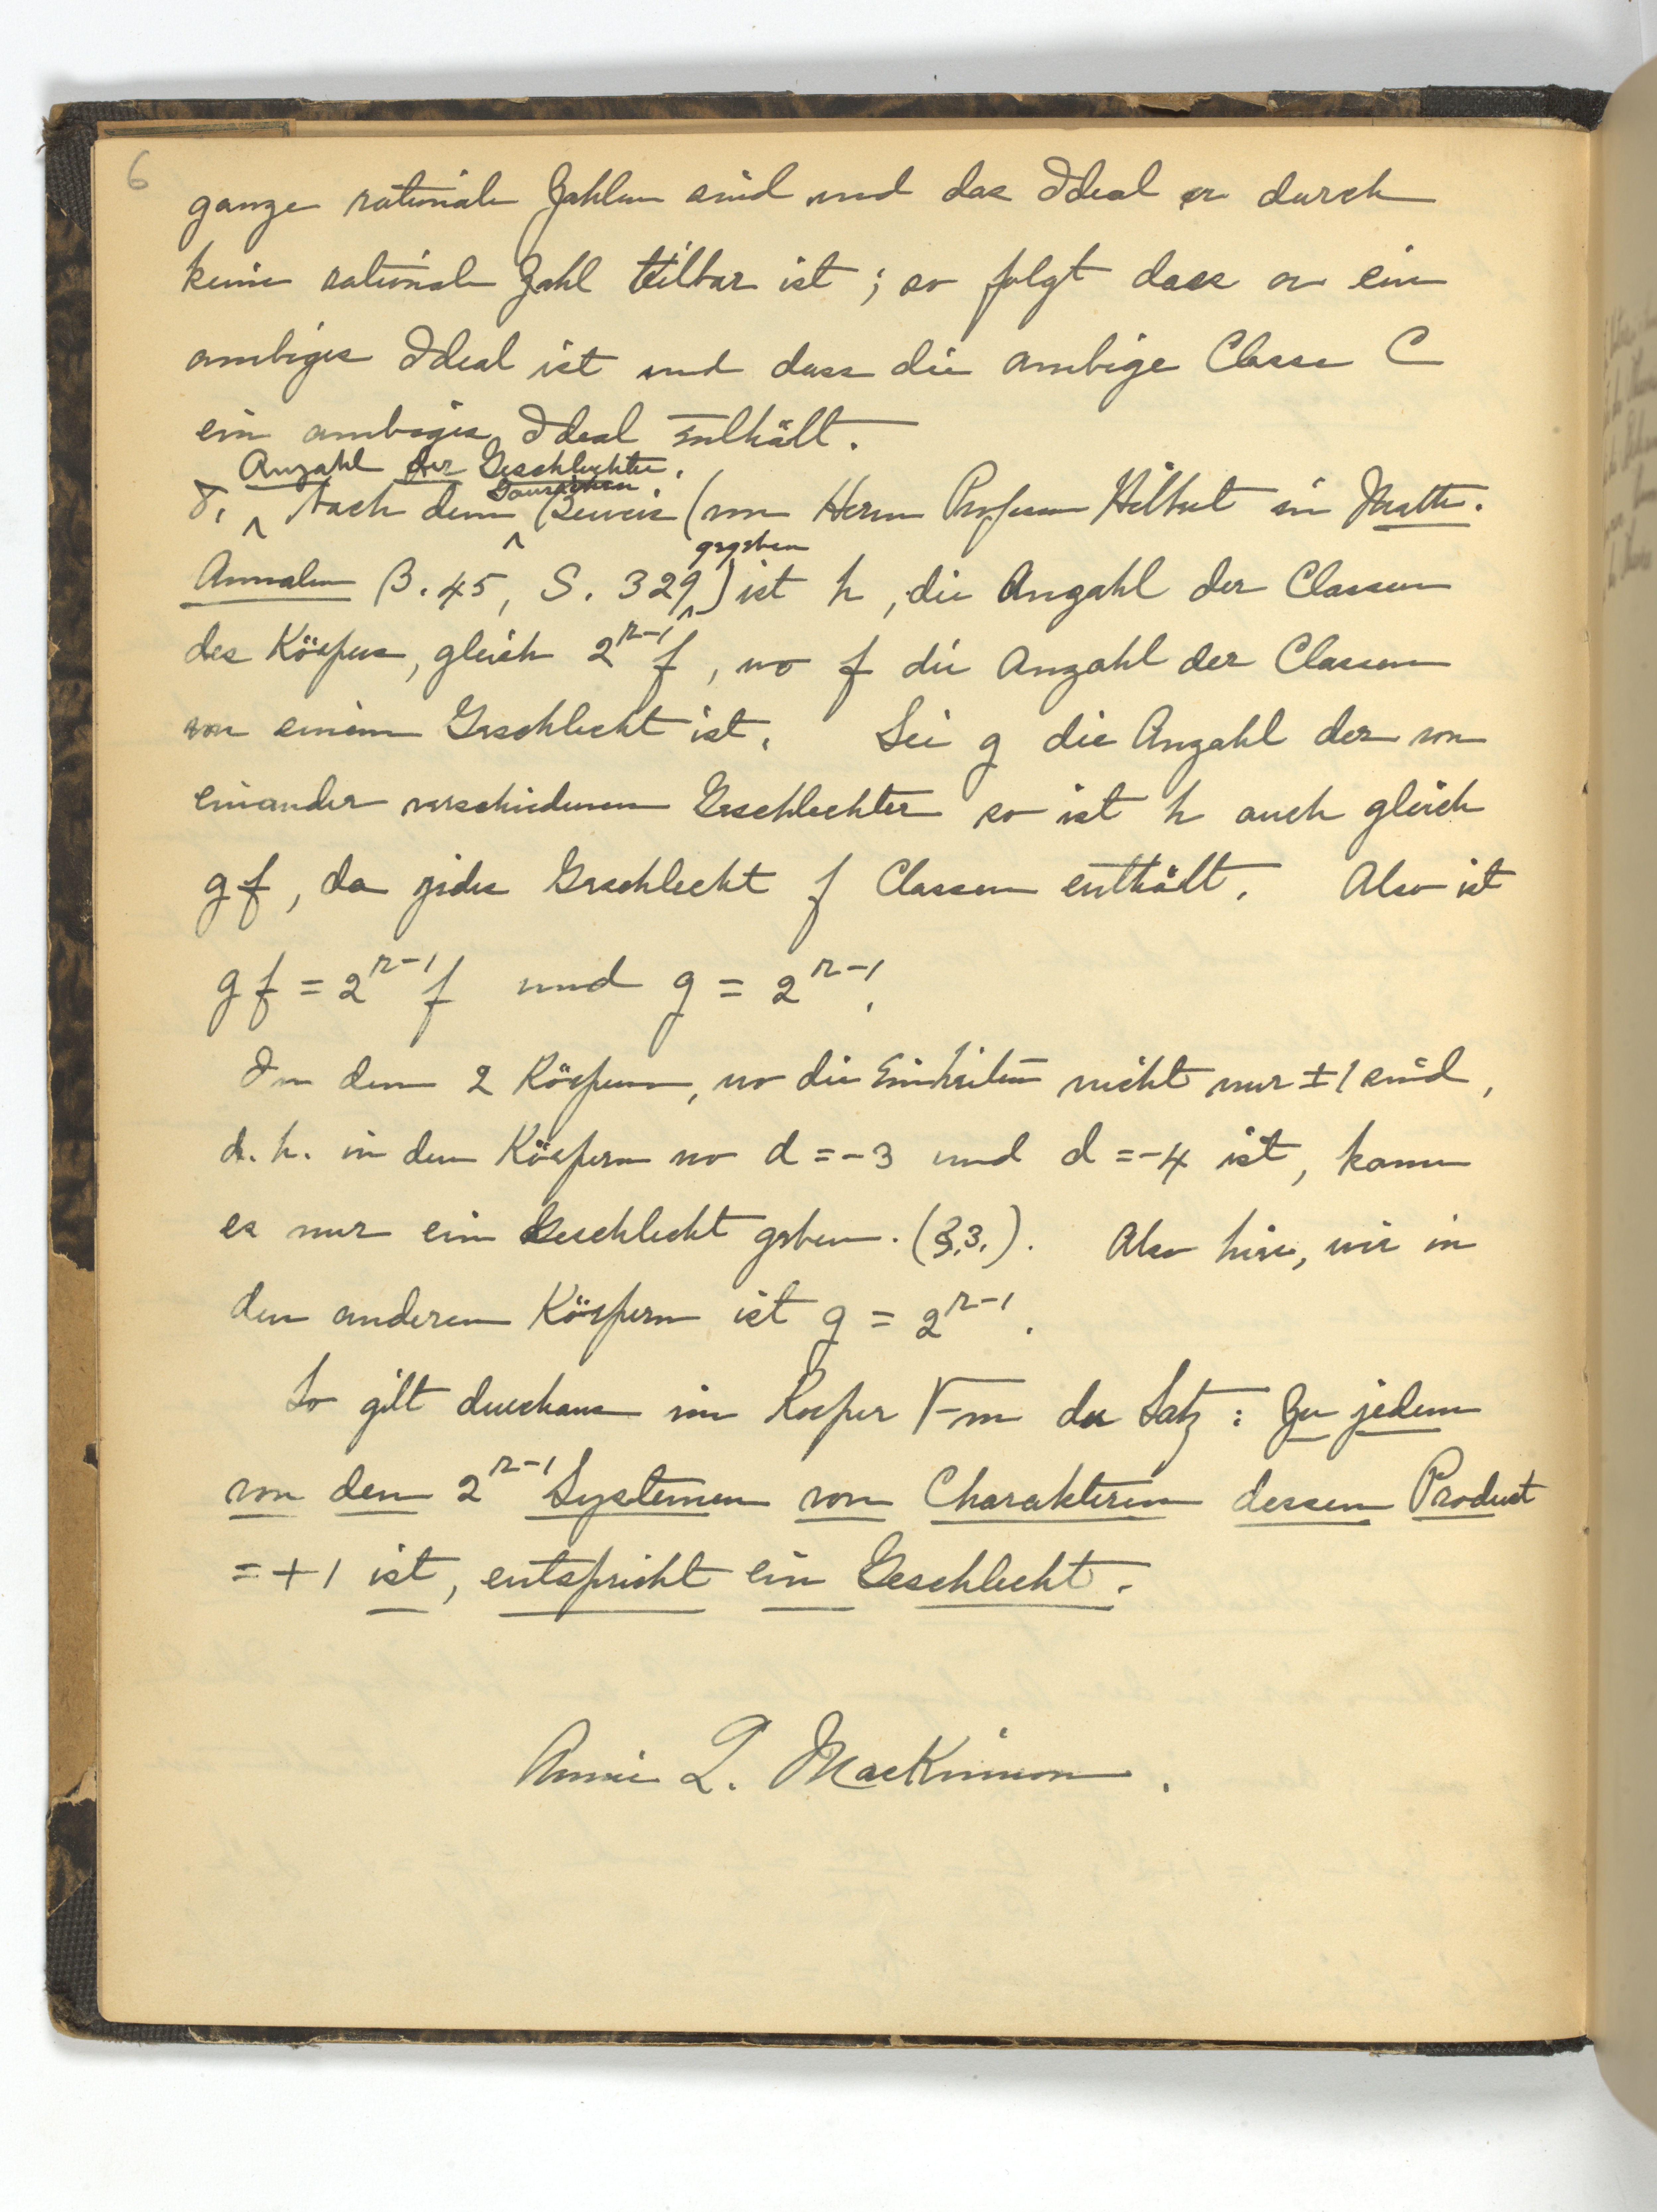 6
ganze rationale Zahlen sind und das Ideal a durch
keine rationale Zahl teilbar ist; so folgt dass a ein
ambiges Ideal ist und dass die ambige Classe C
ein ambiges Ideal enthält.
Anzahl der Geschlechter.
Gaussschen
8. Nach dem Beweis (von Herrn Professor Hilbert in Math.
gegeben
Annalen B. 45, S. 329) ist h, die Anzahl der Classen
des Körpers, gleich 2^{r-1} f, wo f die Anzahl der Classen
von einem Geschlecht ist. Sei g die Anzahl der von
einander verschiedenen Geschlechter so ist h auch gleich
gf, da jedes Geschlecht f Classen enthält. Also ist
gf = 2^{r-1} f und g = 2^{r-1}.
In den 2 Körpern, wo die Einheiten nicht nur ±1 sind,
d. h. in den Körpern wo d = -3 und d = -4 ist, kann
es nur ein Geschlecht geben. (§.3.). Also hier, wie in
den anderen Körpern ist g = 2^{r-1}.
So gilt durchaus im Körper √-m der Satz: Zu jedem
von den 2^{r-1} Systemen von Charakteren dessen Product
= +1 ist, entspricht ein Geschlecht.
Annie L. MacKinnon.